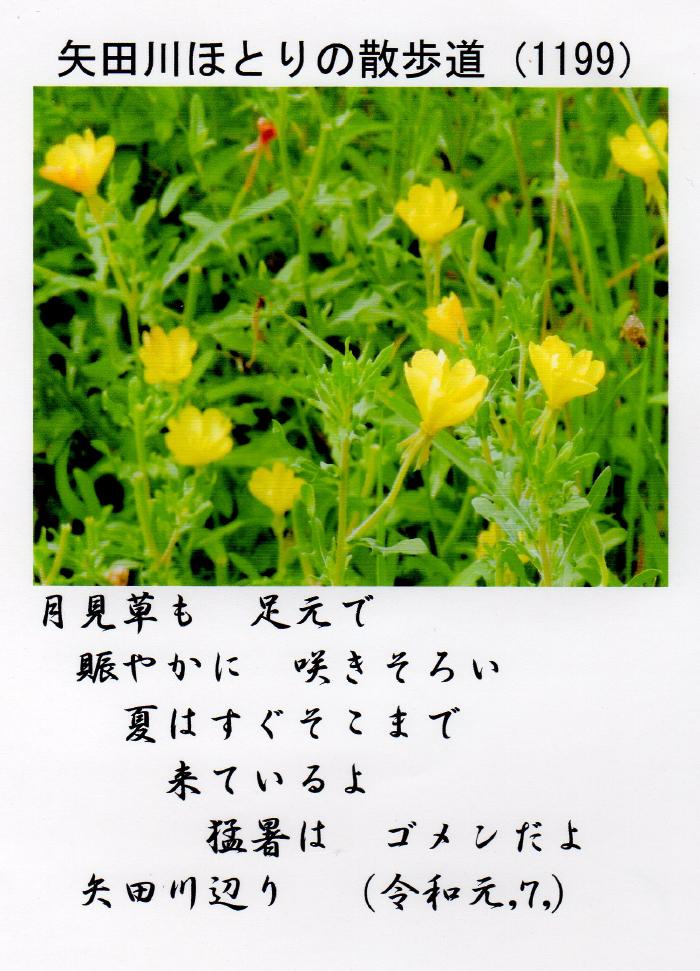 矢田川ほとりの散歩道（1199）
月見草も　足元で
賑やかに　咲きそろい
夏はすぐそこまで
来ているよ
猛暑は　ゴメンだよ
矢田川辺り　（令和元,7,）